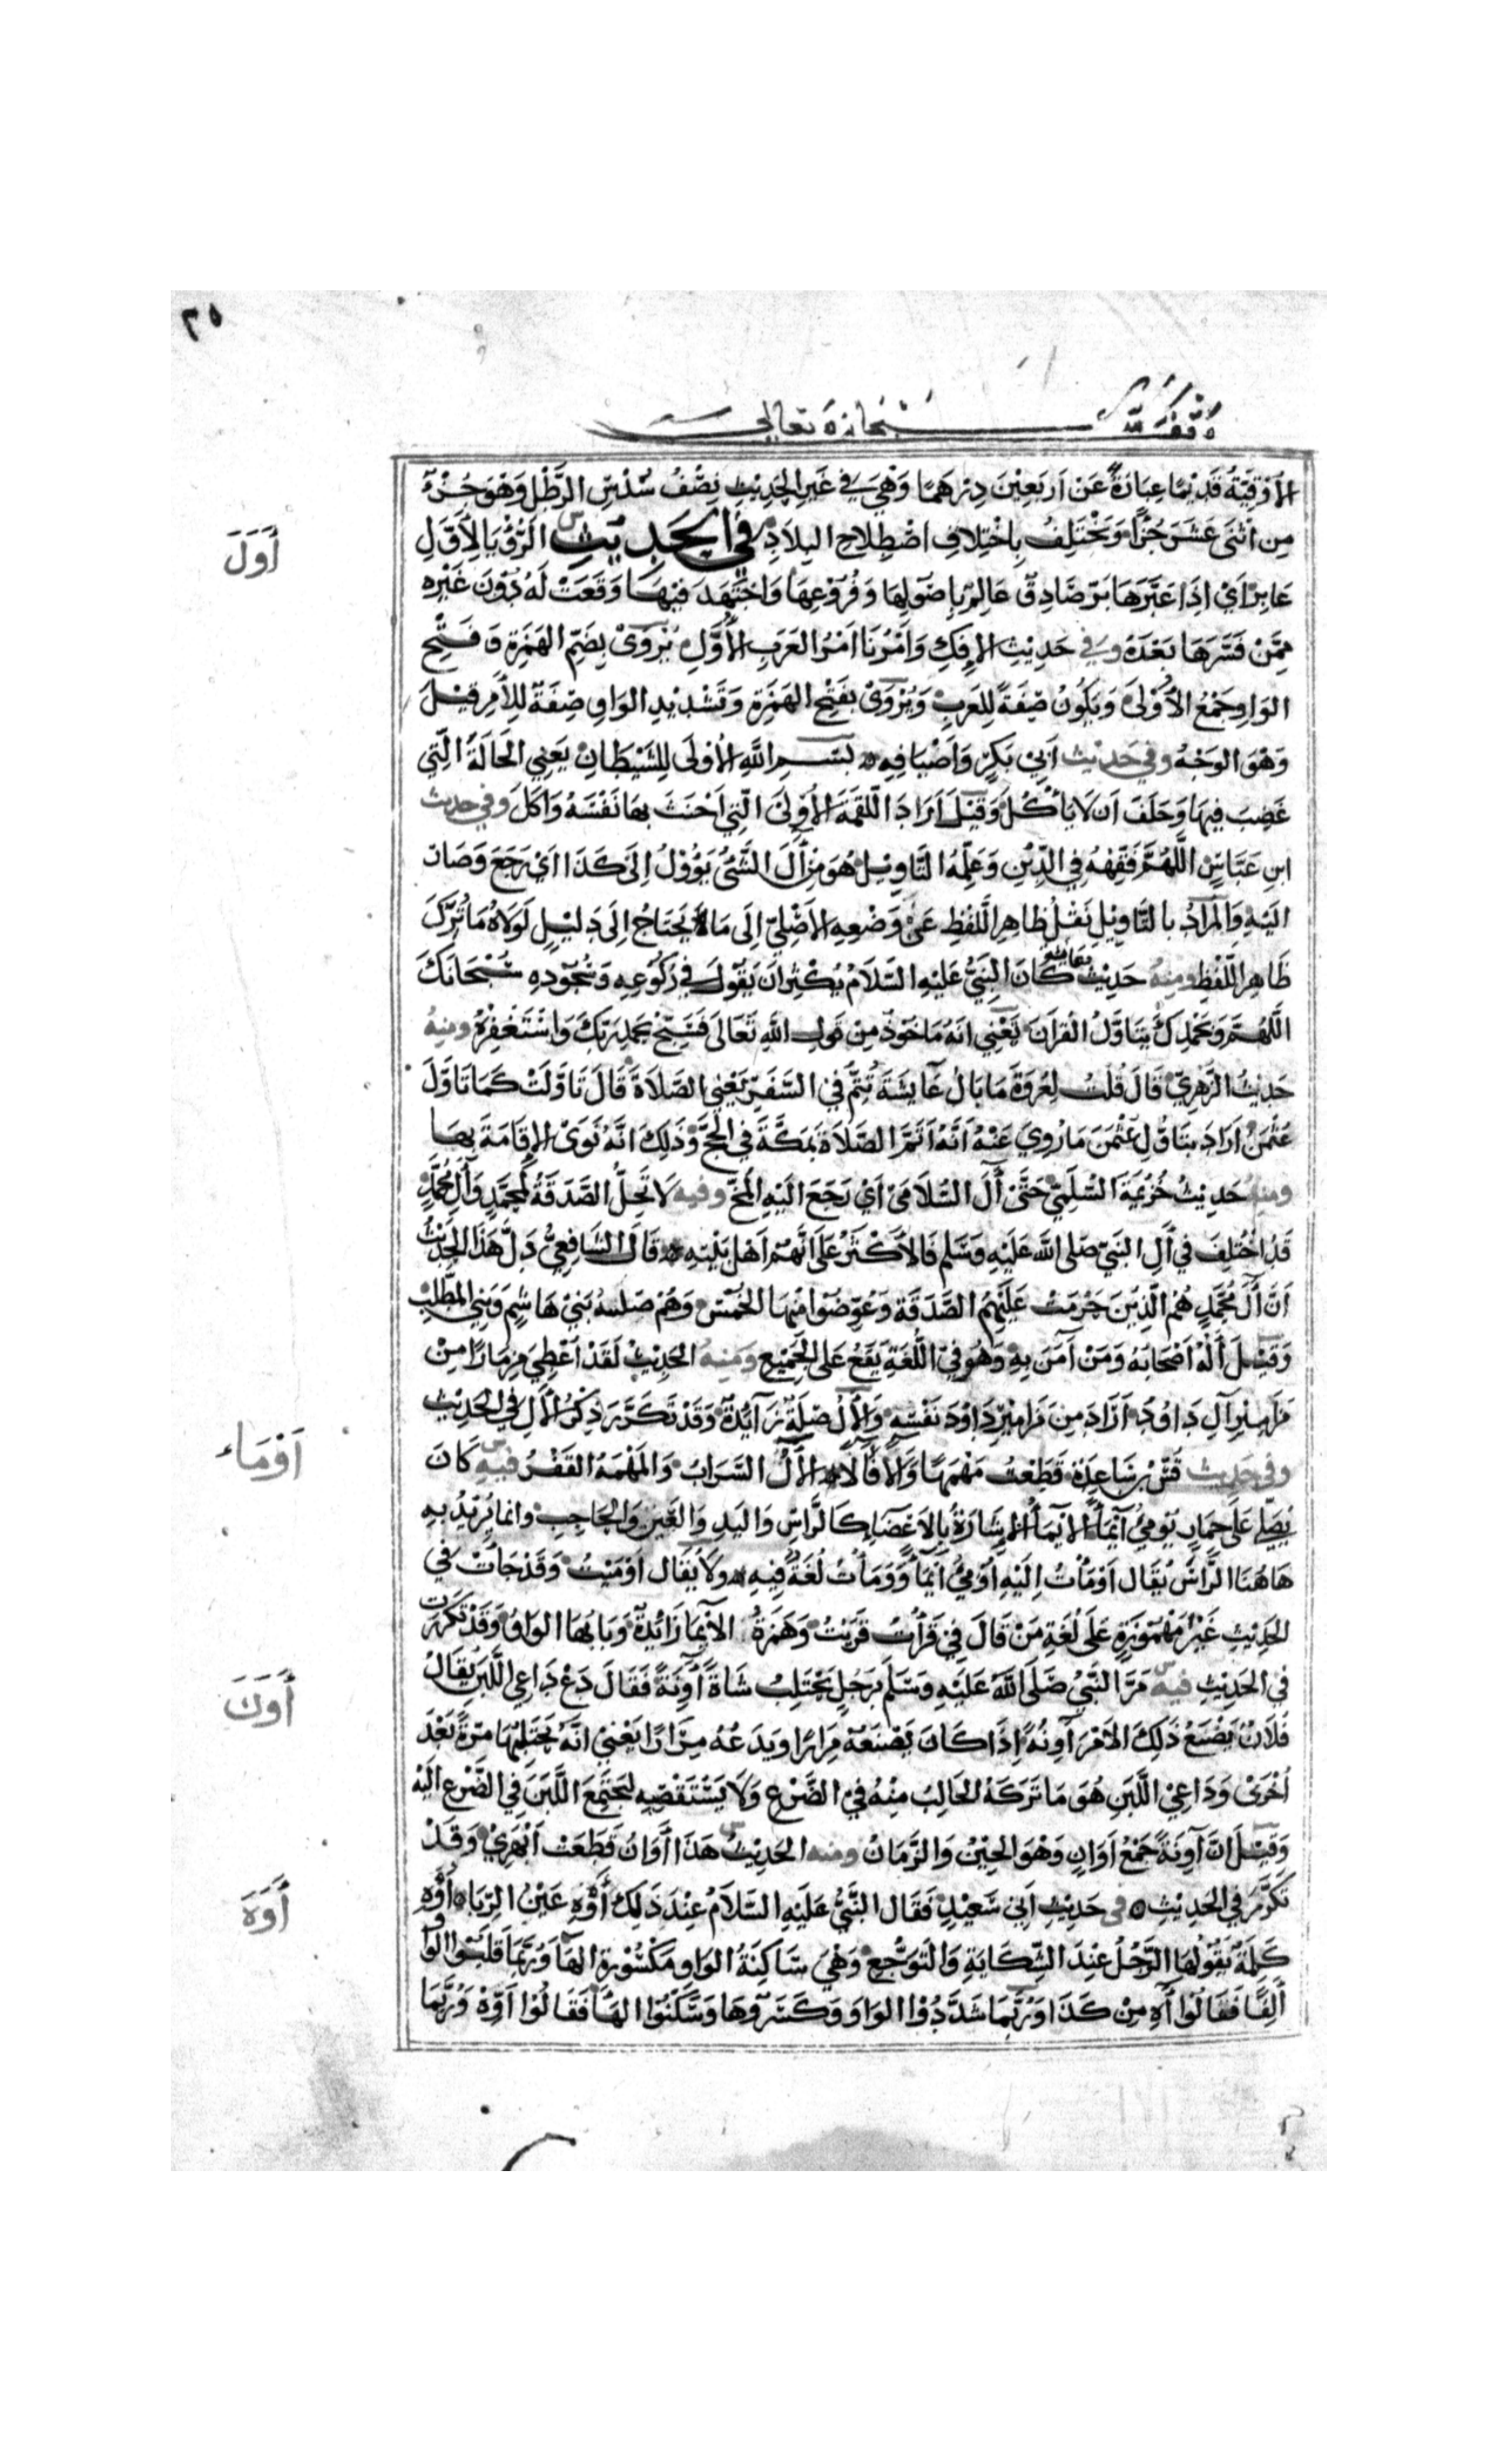 ٢٥
وقف لله سبحانه وتعالى
الأُوْقِيَّةُ قَدِيْمًا عِبَارَةٌ عَن اَربَعِيْنَ دِرْهَمًا وَهْيَ فِي غَيرِ الحَدِيْثِ نِصْفُ سُدْسِ الرَّطْلِ وَهُوَ جُزْءٌ
مِن اثْنَى عَشَرَ جُزْأً وَتَخْتَلِفُ بِاخْتِلَافِ اصْطِلَاحِ البِلَادِ فِي الحَدِيثِ الرُّؤْيَا لِأَوَّلِ
أَوَلَ
عَابِرٍ اَيْ اِذَا عَبَّرَهَا بَرٌّ صَادِقٌ عَالِمٌ بِاُصُوْلِهَا وَفُرُوْعِهَا وَاجْتَهَدَ فِيْهَا وَقَعَتْ لَهُ دُوْنَ غَيْرِه
مِمَّن فَسَّرَهَا بَعْدَهُ وفي حَدِيْثِ الإِفِكِ وَأَمْرُنَا اَمْرُ العَرَبِ الأُوَلِ يُرْوَىْ بِضَمِّ الهَمْزَةِ وَفَتْحِ
الوَاوِ جَمْعُ الأُوْلَى وَيَكُوْنُ صِفَةً لِلعَرَبِ وَيُرْوَىْ بِفَتْحِ الهَمْزَةِ وَتَشْدِيْدِ الوَاوِ صِفَةً لِلأَمْرِ قِيْلَ
وَهْوَ الوَجْهُ وفي حَدِيْث اَبِيْ بَكْرٍ وَاَضْيَافِهِ بِسْمِ اللَّهِ الأُوْلَى لِلشَّيْطَانِ يَعْنِي الحَالَةَ الَّتِي
غَضِبَ فِيهَا وَحَلَفَ اَن لَا يَأْكُلَ وَقِيْلَ اَرَادَ اللُّقْمَةَ الأُوْلَىْ الَّتِي اَحْنَثَ بِهَا نَفْسَهُ وَاَكَلَ وفي حديث
ابنِ عَبَّاسٍ اللَّهُمَّ فَقِّهْهُ فِي الدِّيْنِ وَعَلِّمْهُ التَّاوِيْلَ هُوَ مِنْ آَلَ الشَّيْءُ يَؤُوْلُ اِلَى كَذَا اَيْ رَجَعَ وَصَارَ
اِلَيْهِ وَالمُرَادُ بِالتَّاوِيْلِ نَقْلُ ظَاهِرِ اللَّفْظِ عَنْ وَضْعِهِ الأَصْلِيّ اِلَى مَا يَحْتَاجُ اِلَى دَلِيْلٍ لَوْلَاهُ مَا تُرِكَ
ظَاهِرُ اللَّفْظِ ومِنْهُ حَدِيْثُ عائشة كَانَ النَّبِيُّ عَلَيْهِ السَّلَامُ يُكْثِرُ اَن يَقُوْلَ فِي رُكُوْعِهِ وَسُجُوْدِهِ سُبْحَانَكَ
اللَّهُمَّ وَبِحَمْدِكَ يَتَاَوَّلُ القُرْآنَ يَعْنِي اَنَّهُ مَاخُوْذٌ مِن قَولِ اللَّهِ تَعَالَى فَسَبِّحْ بِحَمْدِ رَبِّكَ وَاسْتَغْفِرْهُ ومِنهُ
حَدِيْثُ الزُّهْرِيِّ قَالَ قُلْتُ لِعُرْوَةَ مَا بَالُ عَايِشَةَ تُتِمُّ فِي السَّفَرِ يَعْنِي الصَّلَاةَ قَالَ تَاَوَّلَتْ كَمَا تَاَوَّلَ
عُثْمَنُ اَرَادَ بِتَاَوُّلِ عُثْمَنَ مَا رُوِيَ عَنْهُ اَنَّهُ اَتَمَّ الصَّلَاةَ بِمَكَّةَ فِي الحَجِّ وَذَلِكَ اَنَّهُ نَوَىْ الإِقَامَةَ بِهَا
ومنهُ حَدِيْثُ خُزَيْمَةَ السُّلَمِيّ حَتَّىْ آَلَ السُّلَامَىْ اَيْ رَجَعَ اِلَيْهِ المُخُّ وفيه لَا تَحِلُّ الصَّدَقَةُ لِمُحَمَّدٍ وَآلِ مُحَمَّدٍ
قَدِ اخْتُلِفَ فِي آلِ النَّبِيّ صَلى اللَّه عَلَيْهِ وَسَلم فَالأَكْثَرُ عَلَى اَنَّهُمْ اَهْلُ بَيْتِهِ قَالَ الشَّافِعِيُّ دَلَّ هَذَا الحَدِيْثُ
اَنَّ آَلَ مُحَمَّدٍ هُمُ الَّذِيْنَ حَرُمَتْ عَلَيْهِمُ الصَّدَقَةُ وَعُوِّضُوْا مِنْهَا الخُمُسَ وَهُمْ صَلبيةُ بَنِيْ هَاشِمٍ وَبَنِي المُطَّلِبِ
وَقِيْلَ آلُهُ اَصْحَابُهُ وَمَنْ آمَنَ بِهِ وَهُوَ فِيْ اللُّغَةِ يَقَعُ عَلَى الجَمِيْعِ وَمِنهُ الحَدِيْثُ لَقَدْ اُعْطِيَ مِزْمَارًا مِنْ
مَزَامِيْرِ آلِ دَاوُدَ اَرَادَ مِن مَزَامِيْرِ دَاوُدَ نَفْسِهِ وَالآلُ صِلَةٌ زَايِدَةٌ وَقَدْ تَكَرَّرَ ذِكْرُ الآلِ فِي الحَدِيْثِ
وفي حَدِيث قُسّ بْنِ سَاعِدَةَ قَطَعْتُ مَهْمَهًا وَآلًا فَآلَا الآلُ السَّرَابُ وَالمَهْمَهُ القَفْرُ فيهِ كَانَ
أَوْمَاء
يُصَلِّي عَلَى حِمَارٍ يُومِئُ اِيْمَآءً الاِيْمَآءُ الإِشَارَةُ بِالأَعْضَاءِ كَالرَّاسِ وَاليَدِ وَالعَيْنِ وَالحَاجِبِ وانما يُرِيْدُ بِهِ
هَاهُنَا الرَّاسَ يُقَالُ اَوْمَأْتُ اِلَيْهِ اُوْمِيُ اِيْمَآءً وَوَمَأْتُ لُغَةٌ فِيهِ وَلَا يُقَال اَوْمَيْتُ وَقَدْ جَاتْ فِي
الحَدِيْثِ غَيْرَ مَهْمُوْزَةٍ عَلَى لُغَةِ مَنْ قَالَ فِي قَرَأْتُ قَرَيْتُ وَهَمْزَةُ الاِيْمَا زَائِدَةٌ وَبَابُهَا الوَاوُ وَقَدْ تَكَرَّرَت
في الحَدِيْثِ فيهِ مَرَّ النَّبِيُّ صَلَى اللَّهُ عَلَيْهِ وَسَلَّمَ بِرَجُلٍ يَحْتَلِبُ شَاةً آوِنَةً فَقَالَ دَعْ دَاعِي اللَّبَنِ يُقَالُ
أَوَنَ
فُلَانٌ يَصْنَعُ ذَلِكَ الأَمْرَ آوِنَةً اِذَا كَانَ يَصْنَعُهُ مِرَارًا وَيَدَعُهُ مِرَارًا يَعْنِيْ اَنَّهُ يَحْتَلِبُهَا مَرَّةً بَعْدَ
اُخْرَىْ وَدَاعِيْ اللَّبَنِ هُوَ مَا تَرَكَهُ الحَالِبُ مِنْهُ فِيْ الضَّرْعِ وَلَا يَسْتَقْصِيْهِ لِيَجْتَمِعَ اللَّبَنُ فِي الضَّرْعِ اِلَيْهِ
وَقِيْلَ اِنَّ آوِنَةً جَمْعُ اَوَانٍ وَهْوَ الحِيْنُ وَالزَّمَانُ ومنه الحَدِيْثُ هَذَا أَوَانُ قَطَعَتْ اَبْهَرِيْ وَقَدْ
تَكَرَّرَ فِي الحَدِيْثِ في حَدِيْثِ اَبِيْ سَعِيْدٍ فَقَالَ النَّبِيُّ عَلَيْهِ السَّلَامُ عِنْدَ ذَلِكَ أَوْهِ عَيْنُ الرِّبَا أَوْهِ
أَوَهَ
كَلِمَةٌ يَقُوْلُهَا الرَّجُلُ عِنْدَ الشِّكَايَةِ وَالتَّوَجُّعِ وَهْيَ سَاكِنَةُ الوَاوِ مَكْسُوْرَةُ الهَآءِ وَرُبَّمَا قَلَبُوْا الوَاوَ
أَلِفًا فَقَالُوْا آهِ مِنْ كَذَا وَرُبَّمَا شَدَّدُوْا الوَاوَ وَكَسَرُوْهَا وَسَكَّنُوْا الهَآءَ فَقَالُوْا اَوِّهْ وَرُبَّمَا